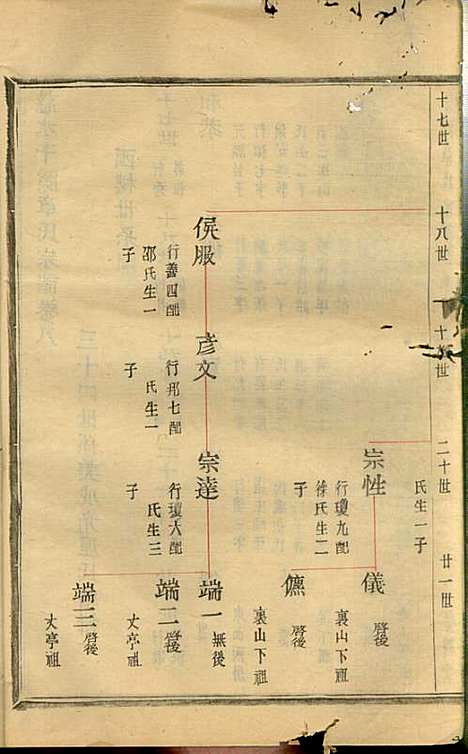 十七世
十八世
十
世
二十世
廿一世
氏生一子
宗性
行瓊九配
徐氏生二
子
儀
啓後
裏山下祖
儦
啓後
裏山下祖
侯服
行善四配
邵氏生一
子
彦文
行邦七配
氏生一
子
宗達
行瓊八配
氏生三
子
端一
無後
端二
啓後
丈亭祖
端三
啓後
丈亭祖